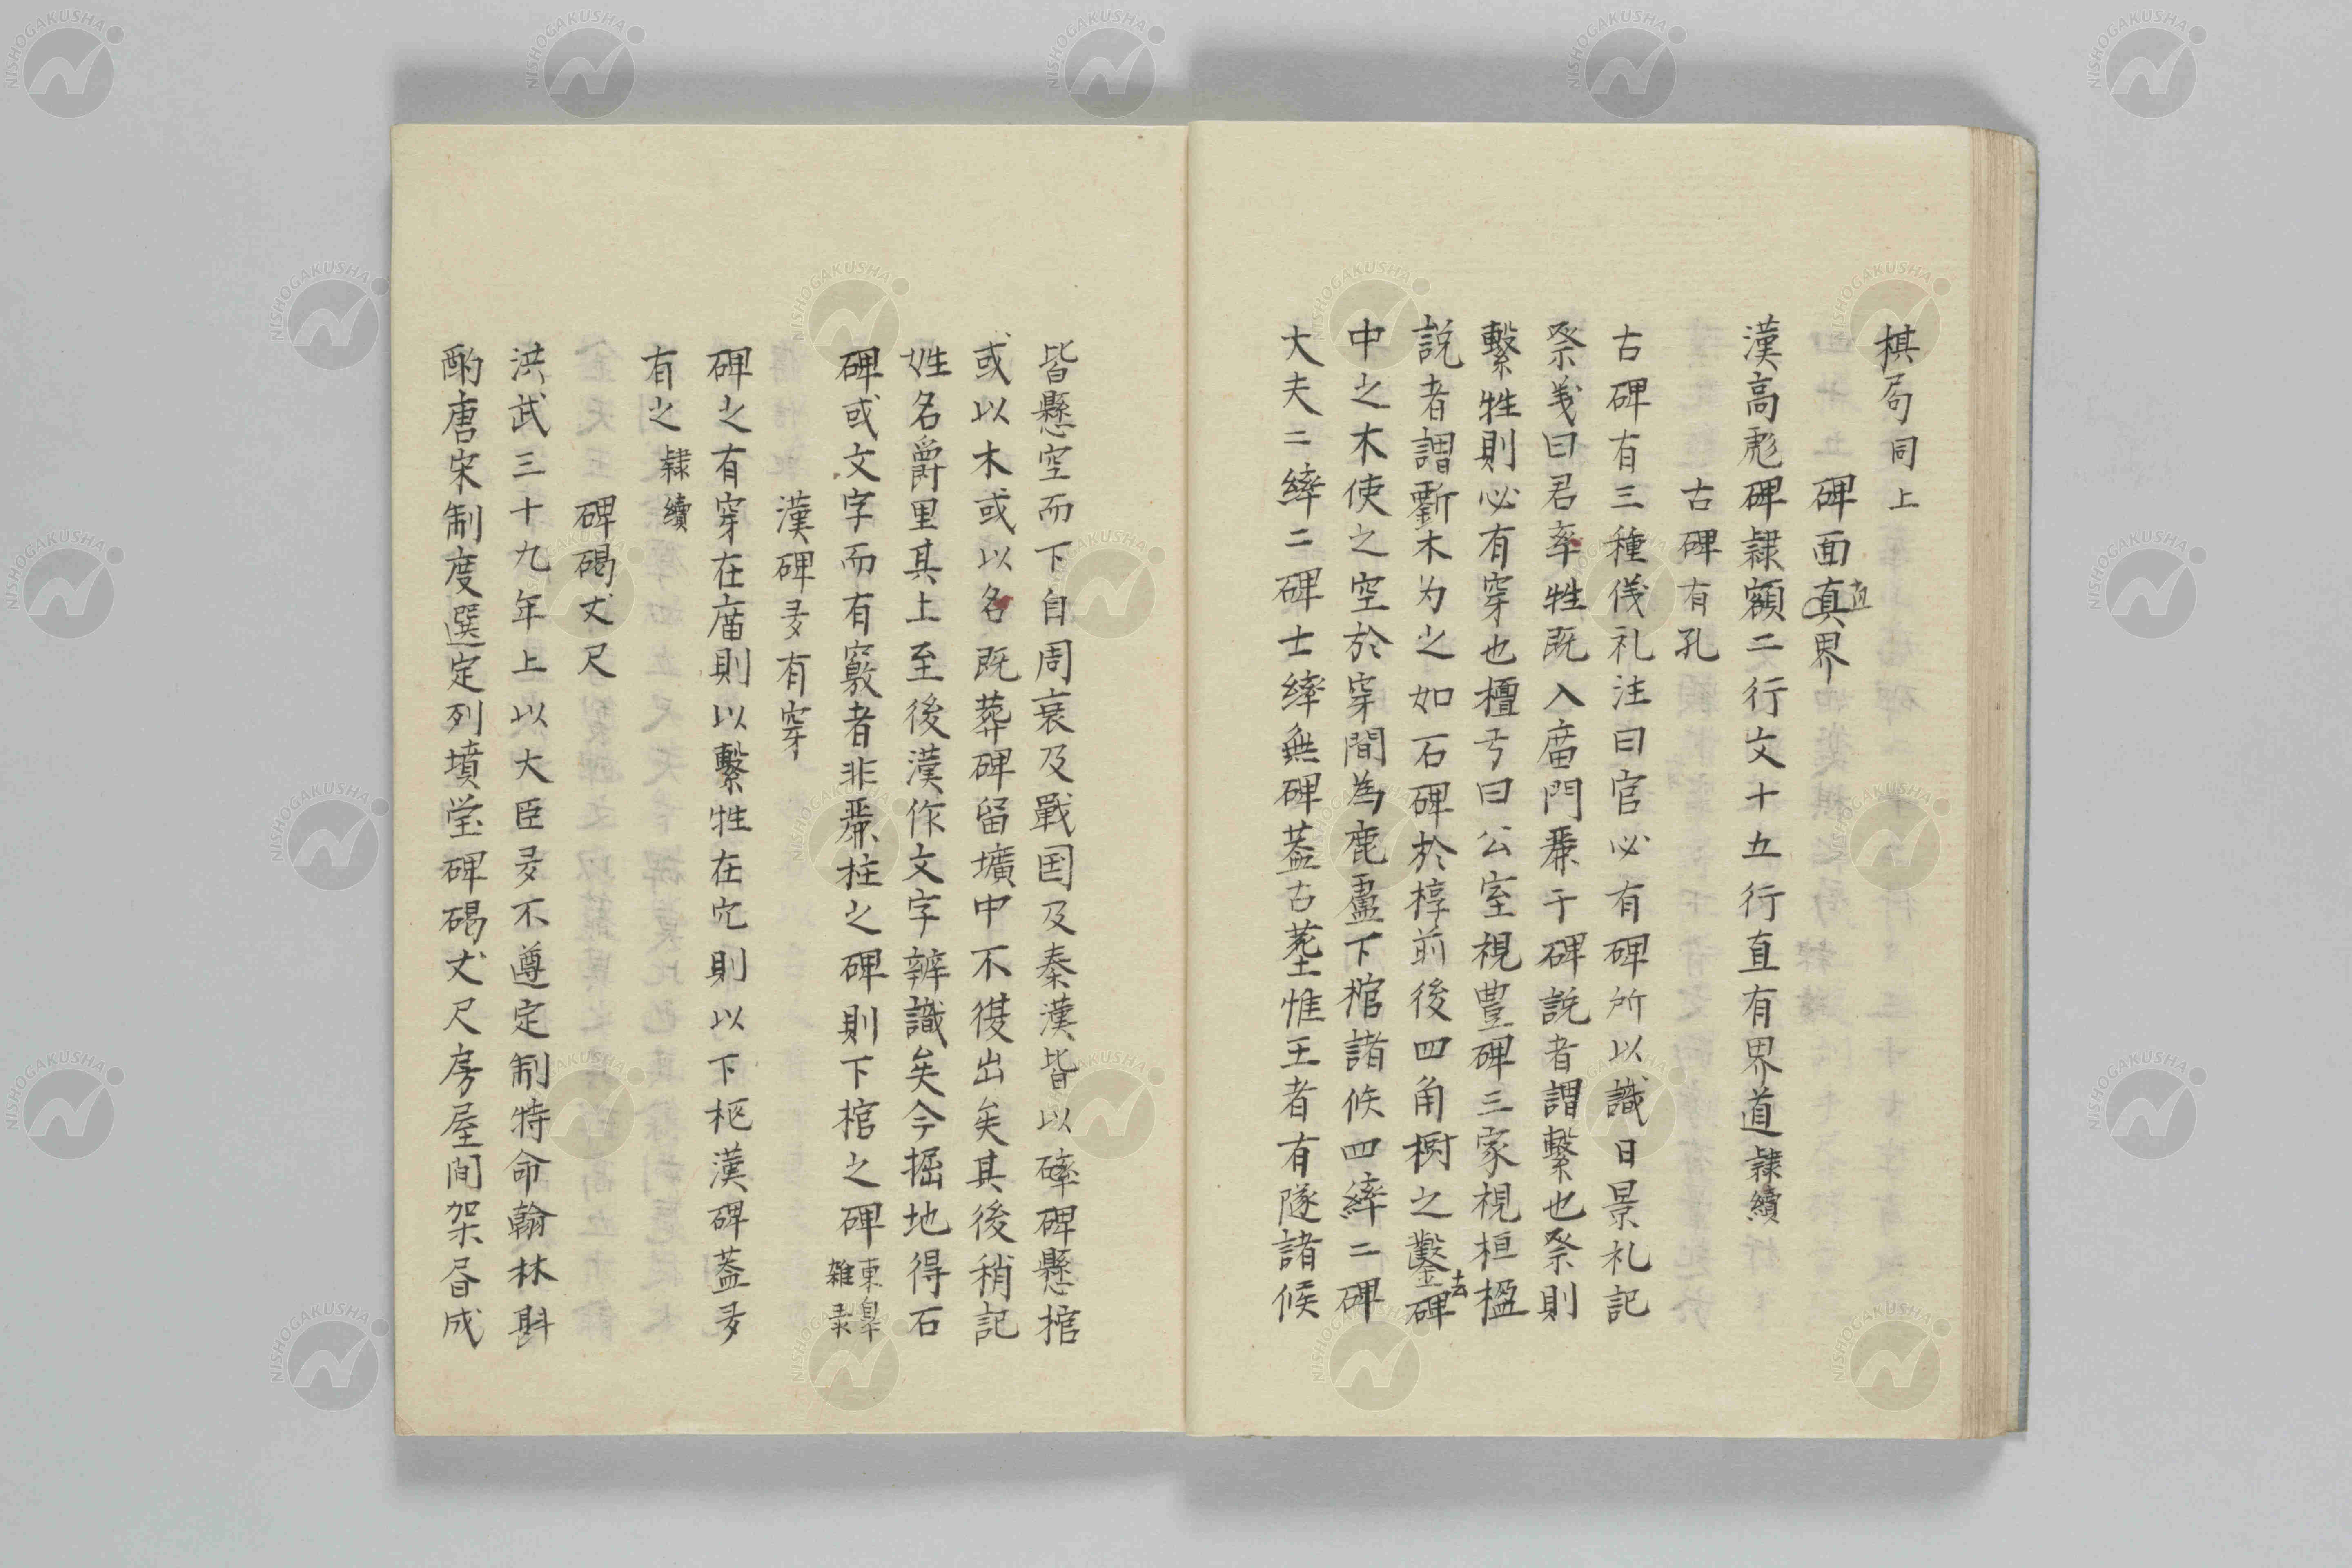 棋局同上
碑面真界
直
漢高彪碑隷額二行文十五行直有界道隷續
古碑有孔
古碑有三種儀礼注曰官必有碑所以識日景礼記
祭義曰君牽牲既入庿門麗于碑說者謂繫也祭則
繫牲則必有穿也檀弓曰公室視豊碑三家視桓楹
說者謂斵木为之如石碑於椁前後四角樹之鑿碑
去
中之木使之空於穿間為鹿盧下棺諸侯四繂二碑
大夫二繂二碑士繂無碑葢古塟惟王者有隧諸候
皆懸空而下自周衰及戰国及秦漢皆以碑懸棺
或以木或以名既葬碑留壙中不復出矣其後稍記
姓名爵里其上至後漢作文字辨識矣今掘地得石
碑或文字而有竅者非麗牲之碑則下棺之碑東皐
雑录
漢碑多有穿
碑之有穿在庿則以繫牲在穴則以下柩漢碑葢多
有之隷續
碑碣丈尺
洪武三十九年上以大臣多不遵定制特命翰林斟
酌唐宋制度選定列墳塋碑碣丈尺房屋間架㫺成